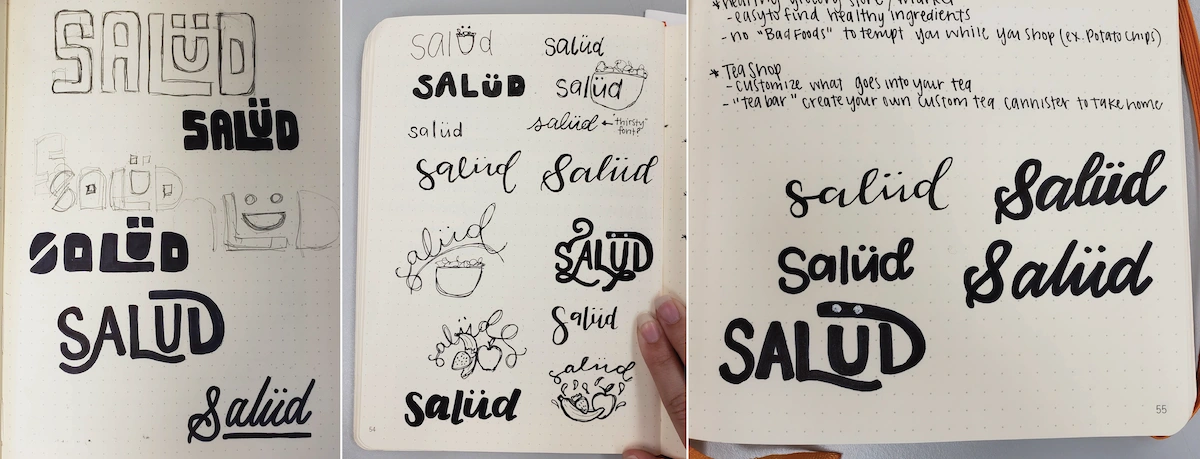 SALÜD
SALÜD
SALÜD
LÜD
SALÜD
SALUD
Salüd
salüd
salüd
SALÜD
salüd
salüd
salüd ← "thirsty" font?
salüd
Salüd
salüd
SALÜD
salüd
Salüd
salüd
salüd
54
*healthy grocery store/market
-easy to find healthy ingredients
-no "Bad Foods" to tempt you while you shop (ex. Potato chips)
*Tea Shop
-customize what goes into your tea
-"tea bar" create your own custom tea cannister to take home
salüd
Salüd
Salüd
Salüd
SALÜD
55